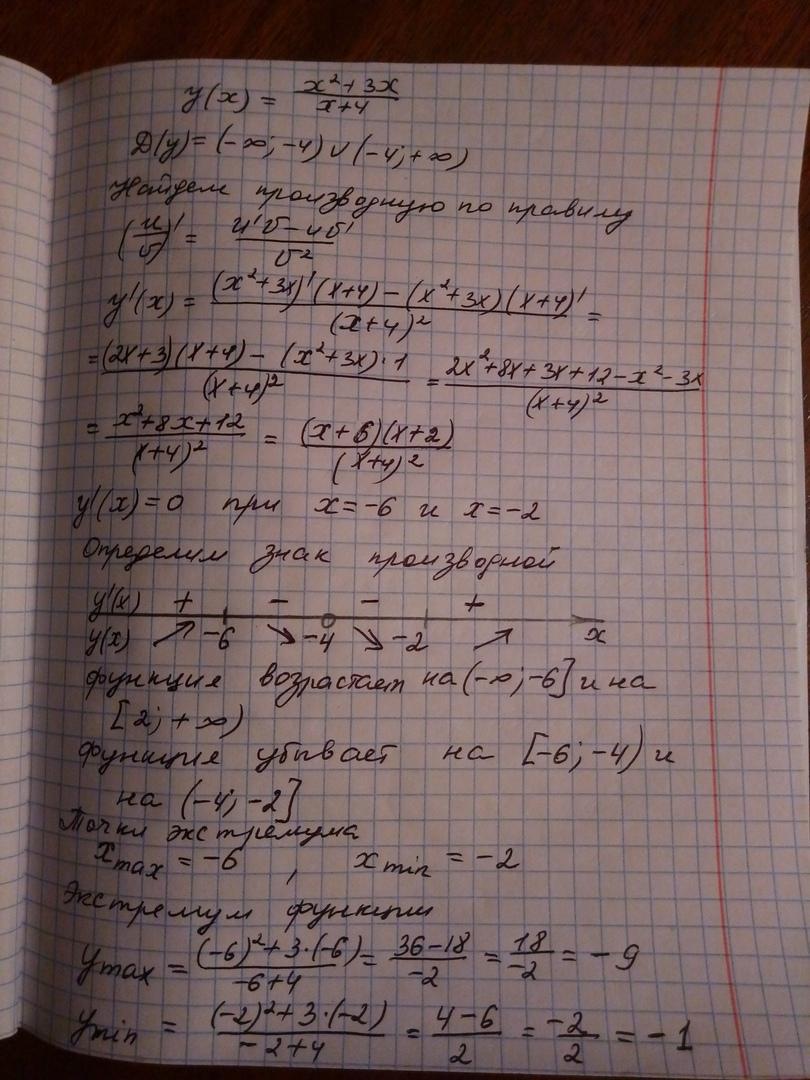 y(x) = (x²+3x)/(x+4)
D(y) = (-∞; -4) ∪ (-4; +∞)
Найдем производную по правилу
(u/v)' = (u'v - uv')/v²
y'(x) = ((x²+3x)'(x+4) - (x²+3x)(x+4)')/(x+4)² =
= ((2x+3)(x+4) - (x²+3x)·1)/(x+4)² = (2x²+8x+3x+12-x²-3x)/(x+4)²
= (x²+8x+12)/(x+4)² = ((x+6)(x+2))/(x+4)²
y'(x) = 0 при x = -6 и x = -2
Определим знак производной
y'(x) + - - +
y(x) ↗ -6 ↘ -4 ↘ -2 ↗ x
функция возрастает на (-∞; -6] и на
[2; +∞)
функция убывает на [-6; -4) и
на (-4; -2]
Точки экстремума
x max = -6 , x min = -2
Экстремум функции
y max = ((-6)²+3·(-6))/(-6+4) = (36-18)/(-2) = 18/(-2) = -9
y min = ((-2)²+3·(-2))/(-2+4) = (4-6)/2 = -2/2 = -1